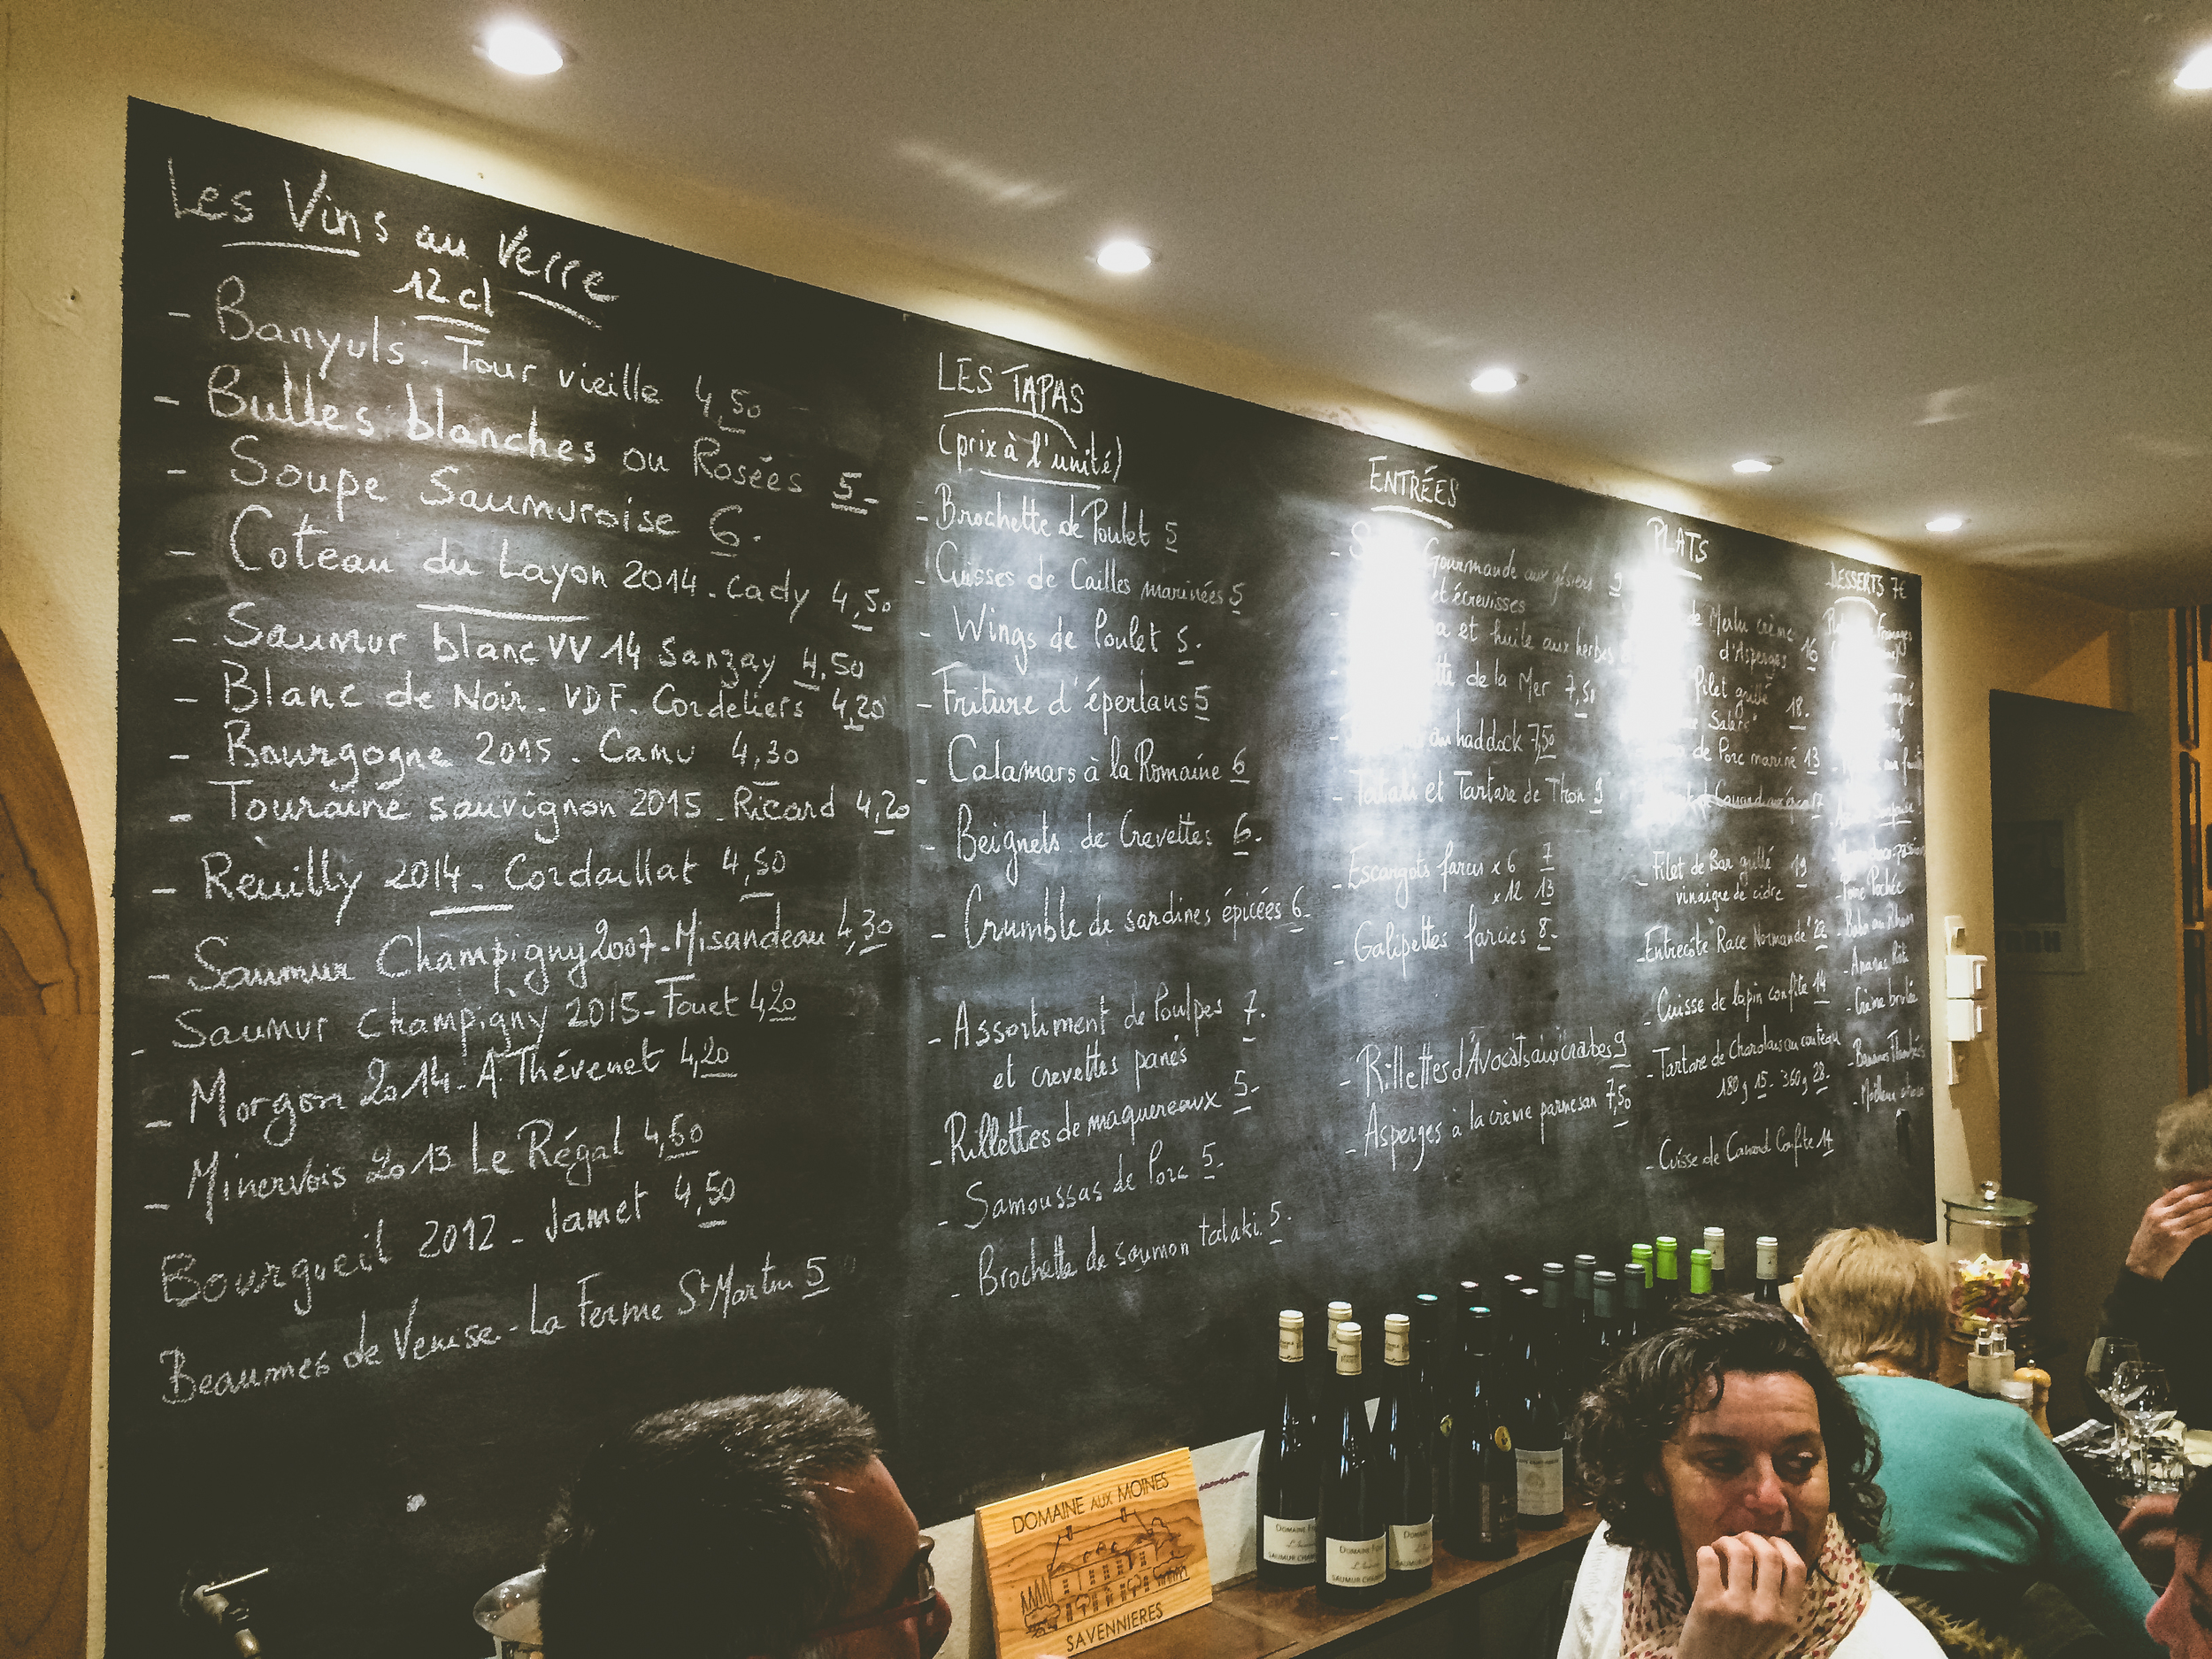 Les Vins au Verre
12 cl
- Banyuls. Tour vieille 4,50
- Bulles blanches ou Rosées 5-
- Soupe Saumuroise 6.
- Coteau du Layon 2014. Cady 4,50
- Saumur blanc VV 14 Sanzay 4,50
- Blanc de Noir. VDF. Cordeliers 4,20
- Bourgogne 2015. Camu 4,30
- Touraine sauvignon 2015. Ricard 4,20
- Reuilly 2014 - Cordaillat 4,50
- Saumur Champigny 2007-Misandeau 4,30
- Saumur Champigny 2015-Fouet 4,20
- Morgon 2014-A. Thévenet 4,20
- Minervois 2013 Le Régal 4,60
Bourgueil 2012 - Jamet 4,50
Beaumes de Venise - La Ferme St Martin 5
LES TAPAS
(prix à l'unité)
- Brochette de Poulet 5
- Cuisses de Cailles marinées 5
- Wings de Poulet 5.
- Friture d'éperlans 5
- Calamars à la Romaine 6
- Beignets de Crevettes 6.
- Crumble de sardines épicées 6.
- Assortiment de Poulpes 7.
et crevettes panés
- Rillettes de maquereaux 5-
- Samoussas de Porc 5.
- Brochette de saumon tataki 5.
ENTRÉES
Gourmande aux gésiers 9
et écrevisses
et huile aux herbes
de la Mer 7,50
au haddock 7,50
- Tataki et Tartare de Thon 9
- Escargots farcis x 6 7
x 12 13
- Galipettes farcies 8-
- Rillettes d'Avocats aux crabes 9
- Asperges à la crème parmesan 7,50
PLATS
de Merlu crème
d'Asperges 16
Filet grillé 18.
de Porc mariné 13
17
- Filet de Bar grillé 19
vinaigre de cidre
- Entrecôte Race Normande 22
- Cuisse de lapin confite 14
- Tartare de Charolais au couteau
180g 15- 360g 28-
- Cuisse de Canard Confite 14
DESSERTS 7€
Fromages
- Poire Pochée
- Baba au Rhum
- Ananas Rôti
- Crème brulée
DOMAINE AUX MOINES
SAVENNIERES
DOMAINE
SAUMUR CHAMP